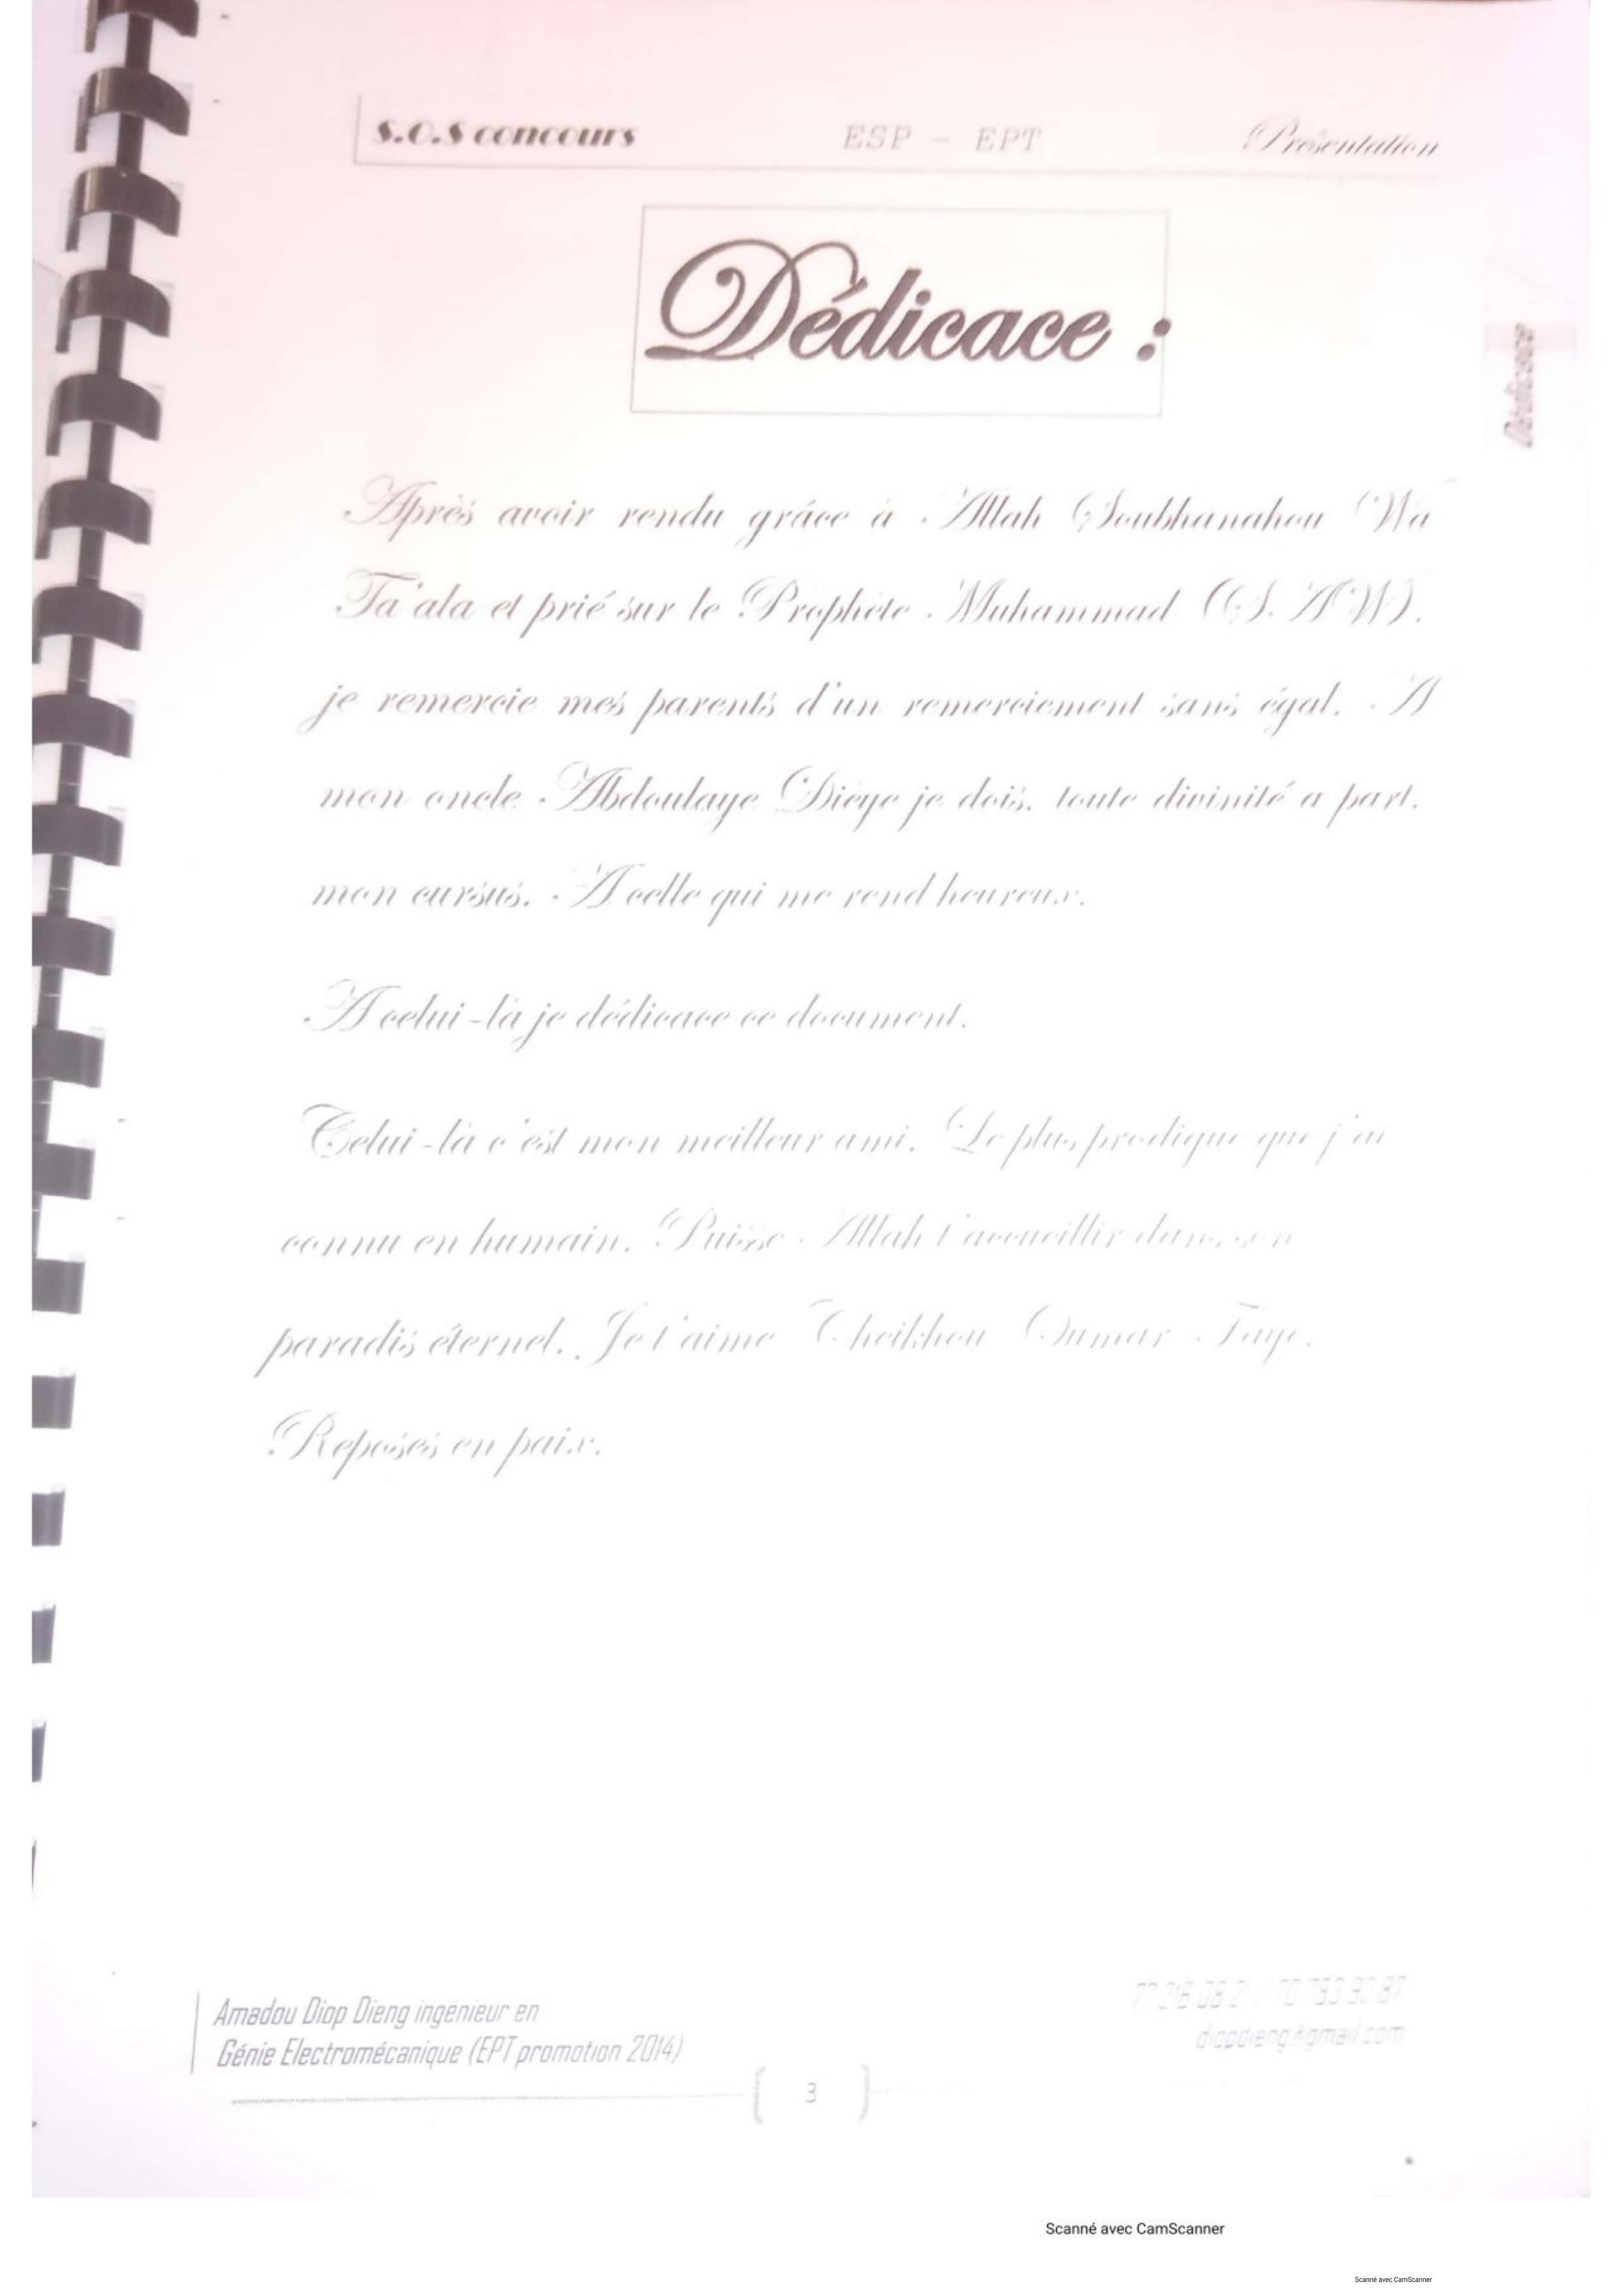 S.O.S concours ESP - EPT Présentation
Dédicace :
Dédicace
Après avoir rendu grâce à Allah Soubhanahou Wa
Ta'ala et prié sur le Prophète Muhammad (S.A.W).
je remercie mes parents d'un remerciement sans égal. A
mon oncle Abdoulaye Dièye je dois, toute divinité a part,
mon cursus. A celle qui me rend heureux.
A celui-là je dédicace ce document.
Celui-là c'est mon meilleur ami. Le plus prodigue que j'ai
connu en humain. Puisse Allah t'accueillir dans son
paradis éternel. Je t'aime Cheikhou Oumar Faye.
Reposes en paix.
Amadou Diop Dieng ingénieur en
Génie Electromécanique (EPT promotion 2014)
diopdieng@gmail.com
3
Scanné avec CamScanner
Scanné avec CamScanner